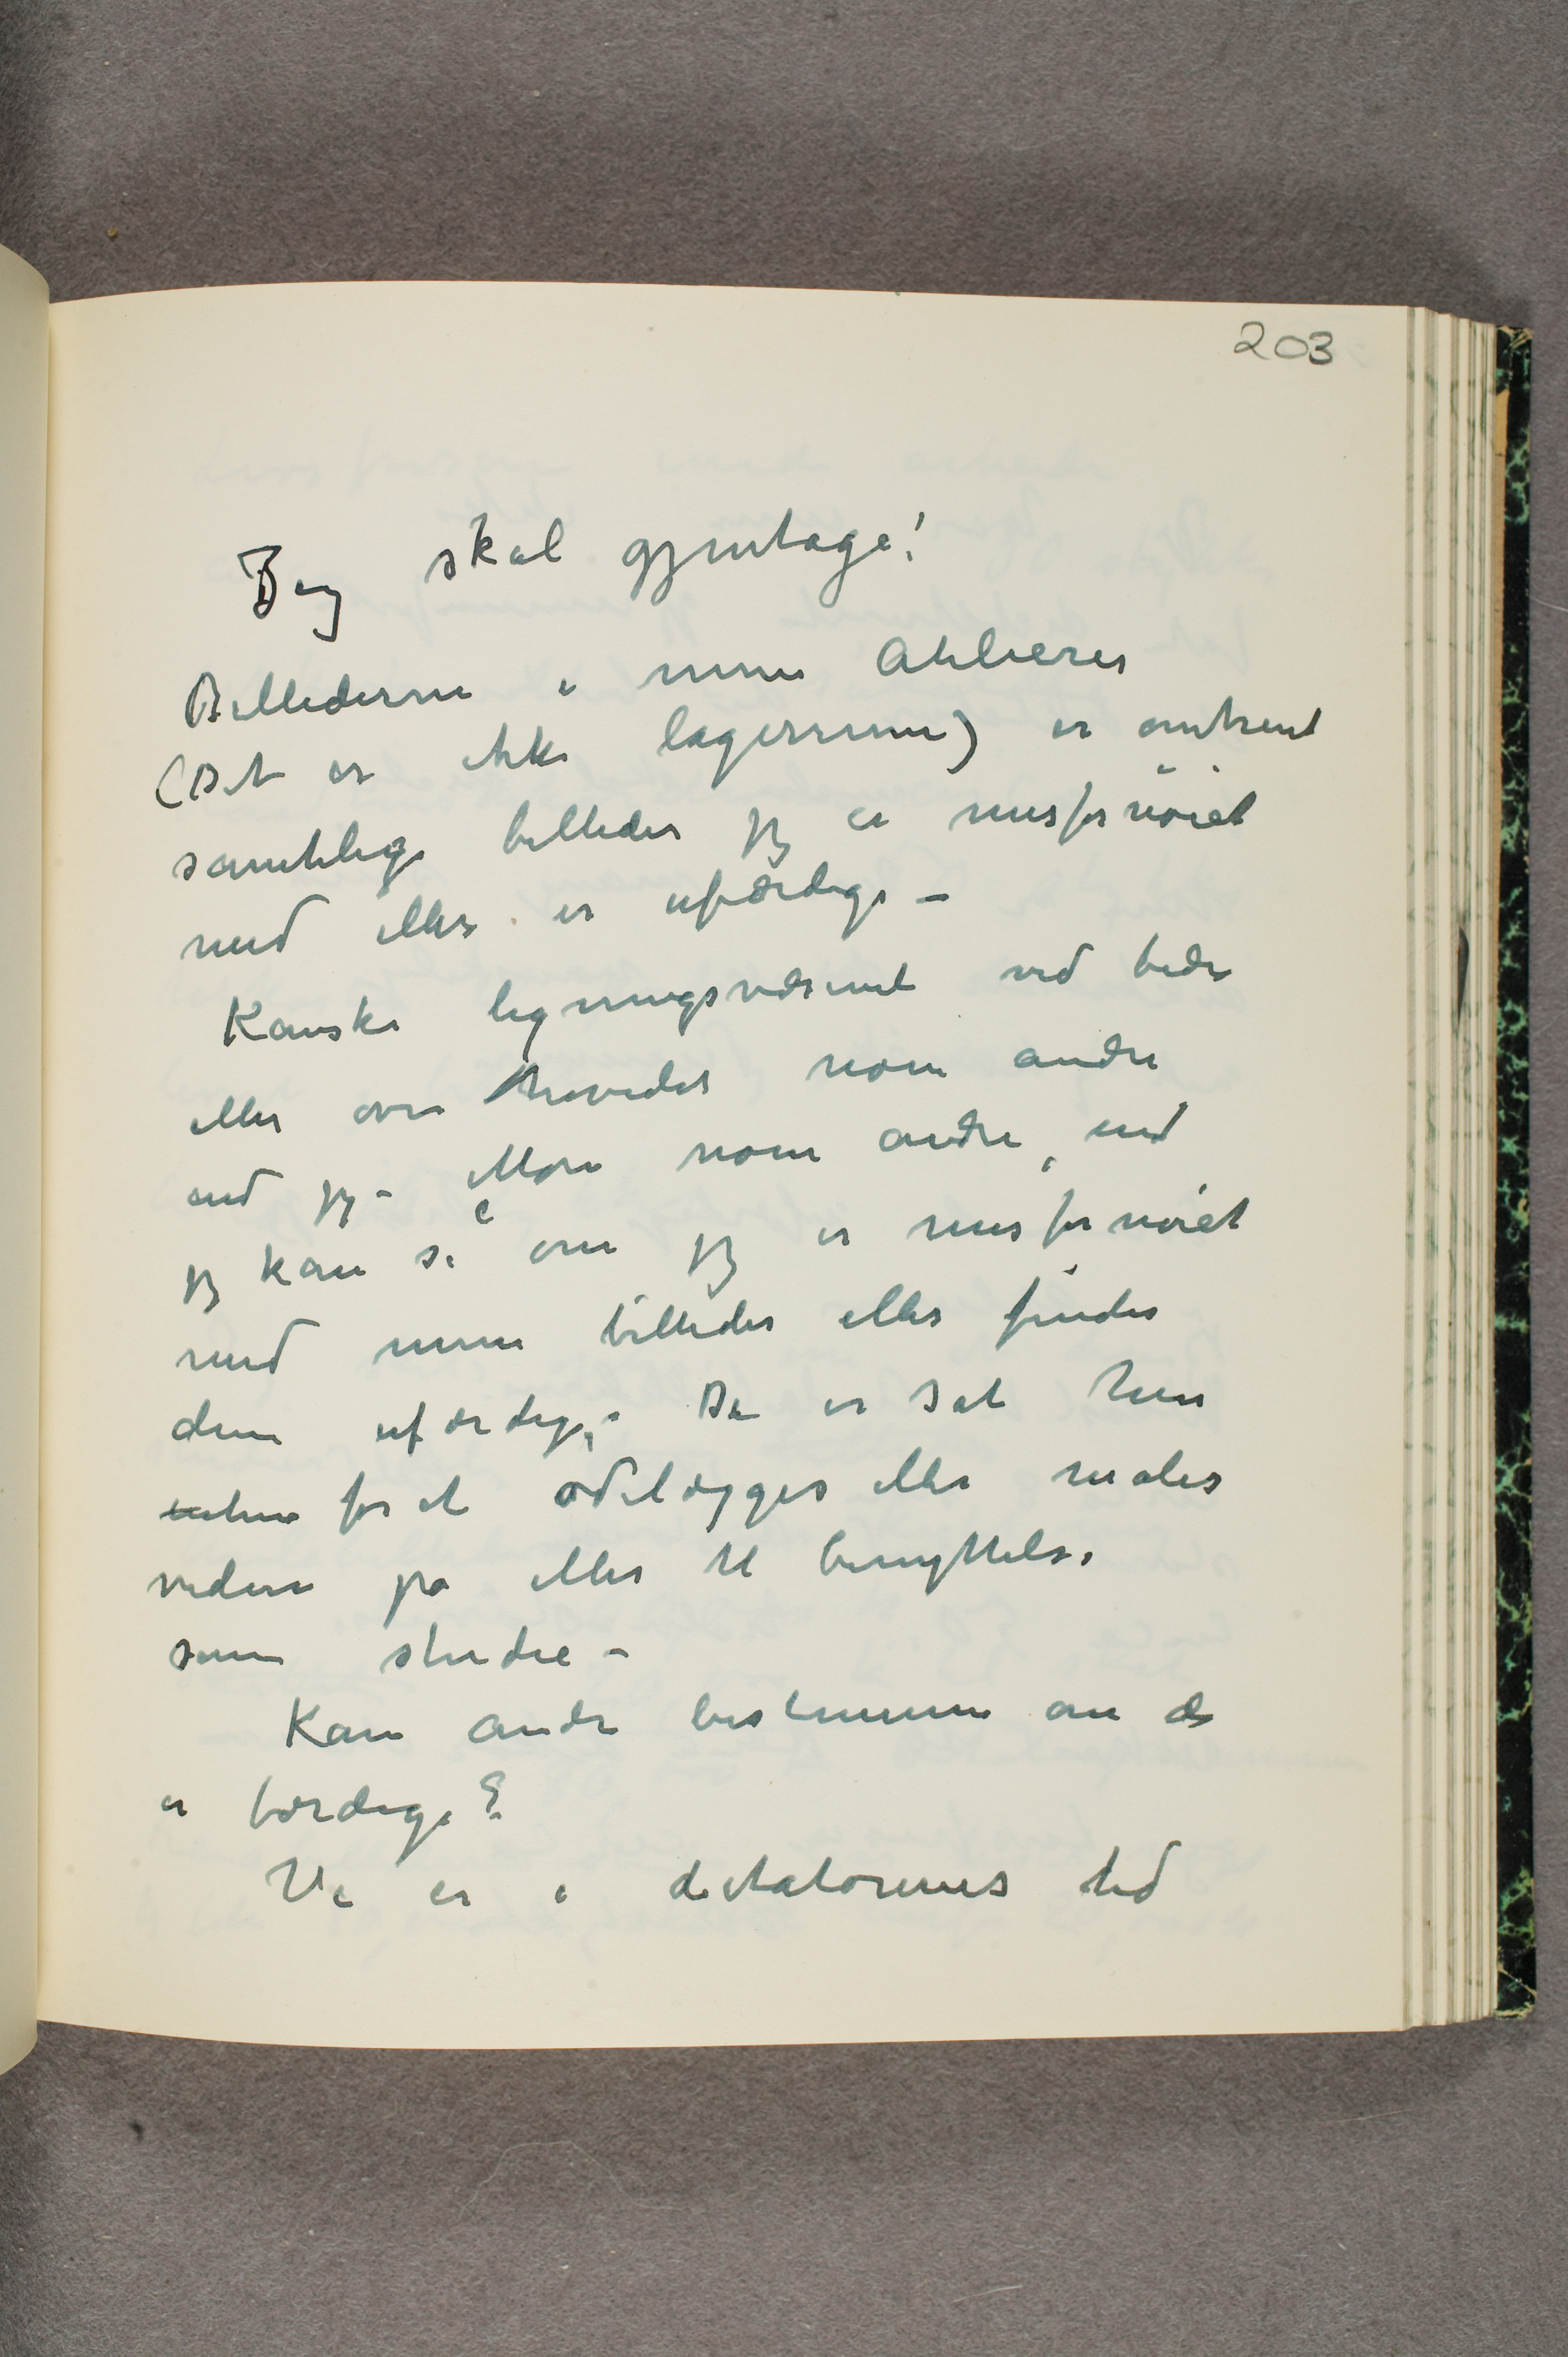 203
Jeg skal gjentage!
Billederne i mine Atelierer
(Det er ikke lagerrum) er omtrent
samtlige billeder jeg er misfornöiet
med eller er ufærdige –
Kanske ligningsvæsenet ved bedre
eller over hovedet nom andre
end jeg – Mon nom andre, end
jeg kan se om jeg er misfornöiet
med mine billeder eller finder
dem ufærdige. De er sat hen
enten for at ödelægges eller males
videre på eller til benyttelse
som studie –
Kan andre bestemme om de
er færdige?
Vi er i diktatorernes tid